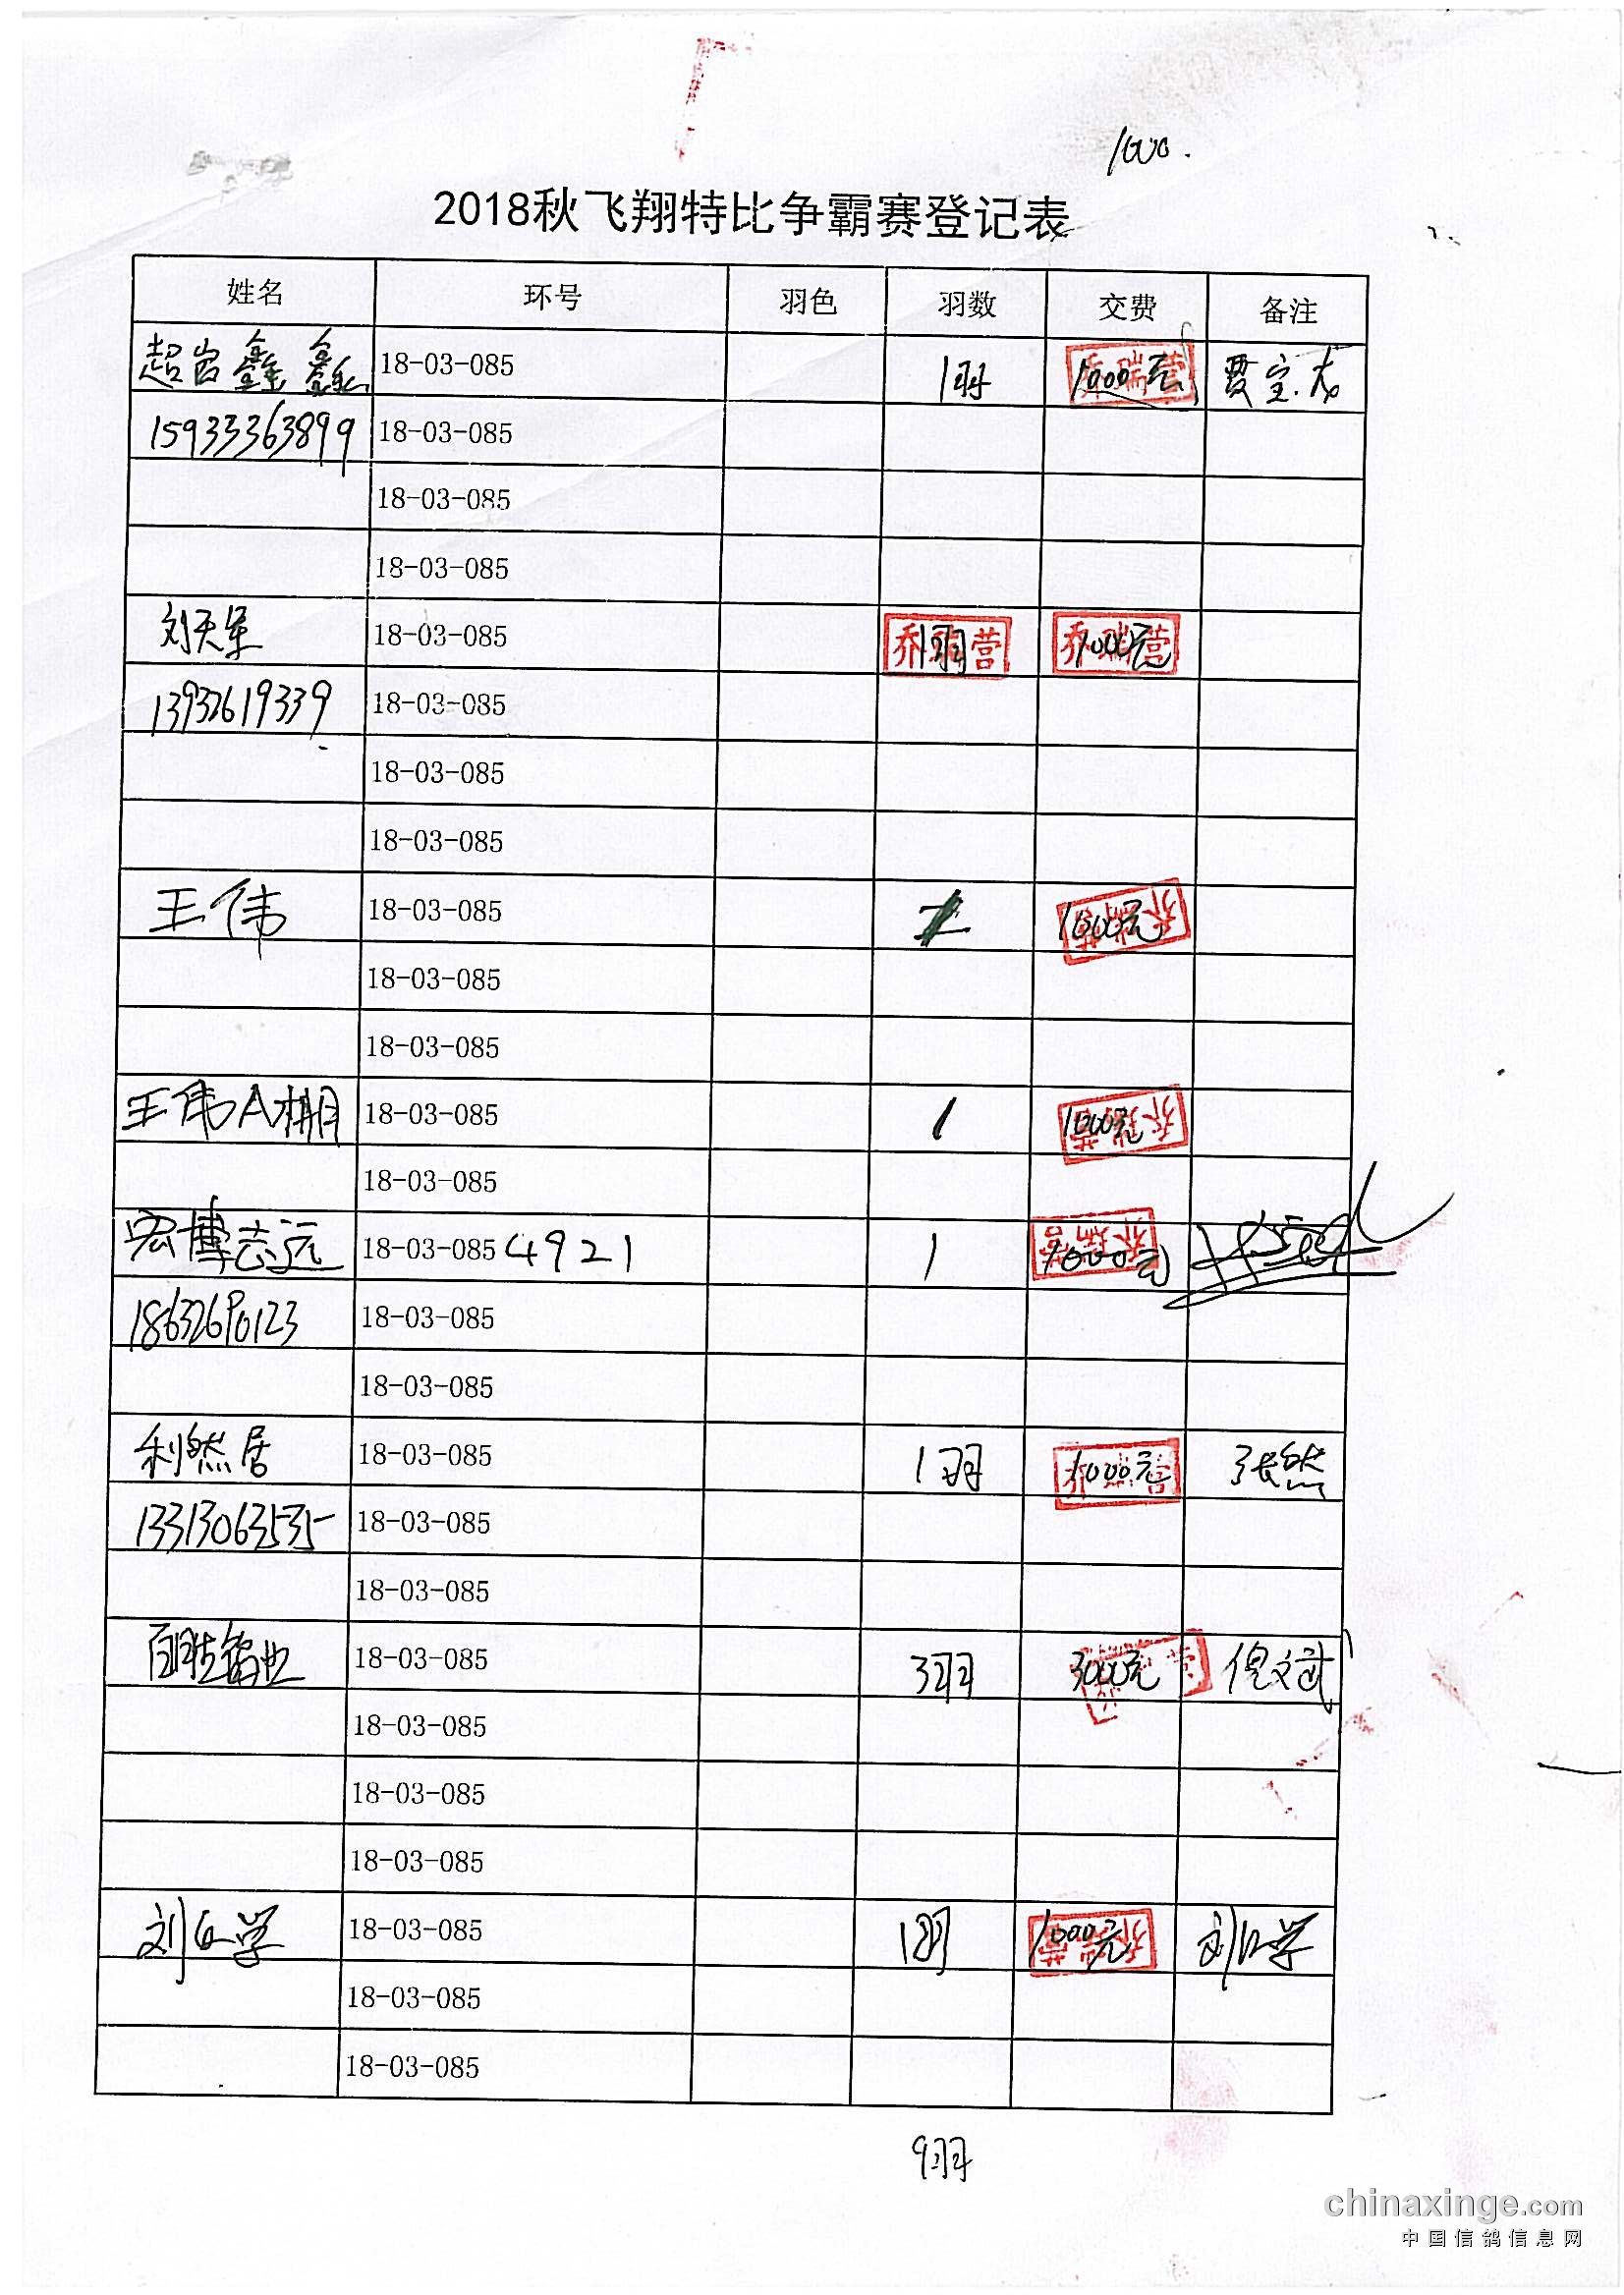 1000.
2018秋飞翔特比争霸赛登记表
姓名 环号 羽色 羽数 交费 备注
18-03-085 1羽 1000元 贾宝
15933363899 18-03-085
18-03-085
18-03-085
刘天军 18-03-085 1羽 1000元
13932619339 18-03-085
18-03-085
18-03-085
王伟 18-03-085 1000元
18-03-085
18-03-085
王伟A棚 18-03-085 1 1000元
18-03-085
宏博志远 18-03-085 4921 1 1000元
18632690123 18-03-085
18-03-085
利然居 18-03-085 1羽 1000元 张然
13313063535 18-03-085
18-03-085
百胜鸽业 18-03-085 3羽 3000元 倪文斌
18-03-085
18-03-085
18-03-085
18-03-085 1羽 1000元
18-03-085
18-03-085
9羽
chinaxinge.com
中国信鸽信息网